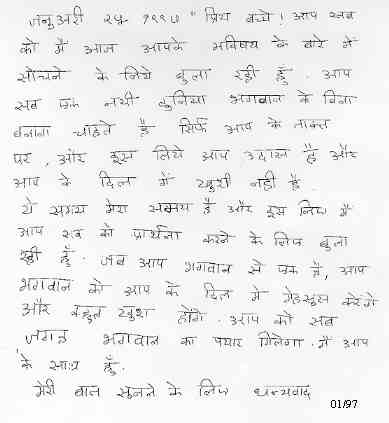 जनुअरी २५ १९९७ "प्रिय बच्चे! आप सब
को मैं आज आपके भविषय के बारे में
सोचने के लिये बुला रही हूँ. आप
सब एक नयी दुनिया भगवान के बिना
बनाना चाहते है सिर्फ आप के ताकत
पर, और इस लिये आप उदास है और
आप के दिल में खुशी नही है.
ये समय मेरा समय है और इस लिए मैं
आप सब को प्रार्थना करने के लिए बुला
रही हूँ. जब आप भगवान से एक है, आप
भगवान को आप के दिल मे मेहसूस करेंगे
और बहुत खुश होंगे. आप को सब
जगह भगवान का पयार मिलेगा. मैं आप
के साथ हूँ.
मेरी बात सुनने के लिए धन्यवाद
01/97